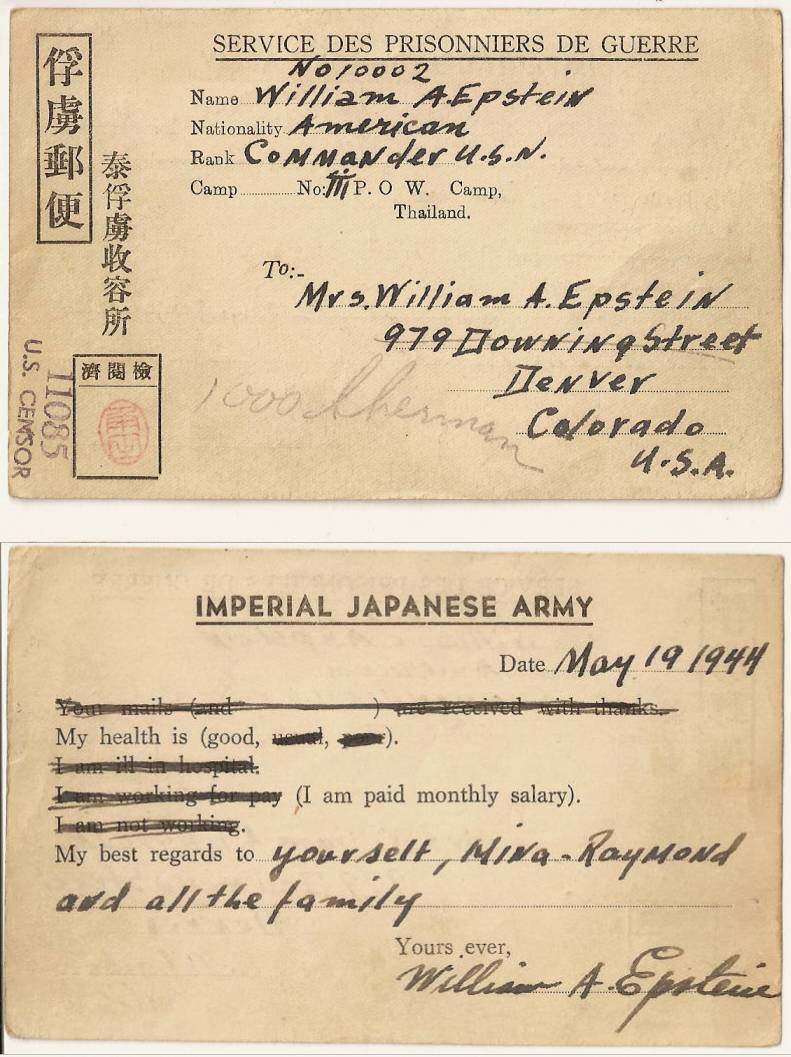 SERVICE DES PRISONNIERS DE GUERRE
No 10002
Name William A. Epstein
Nationality American
Rank Commander U.S.N.
Camp No: III P. O W. Camp,
Thailand.
To:-
Mrs. William A. Epstein
979 Downing Street
Denver
Colorado
U.S.A.
1000 Sherman
俘虜郵便
泰俘虜收容所
檢閱濟
11085
U.S. CENSOR
IMPERIAL JAPANESE ARMY
Date May 19 1944
Your mails (and ) are received with thanks.
My health is (good, usual, poor).
I am ill in hospital.
I am working for pay (I am paid monthly salary).
I am not working.
My best regards to yourself, Mina - Raymond
and all the family
Yours ever,
William A. Epstein